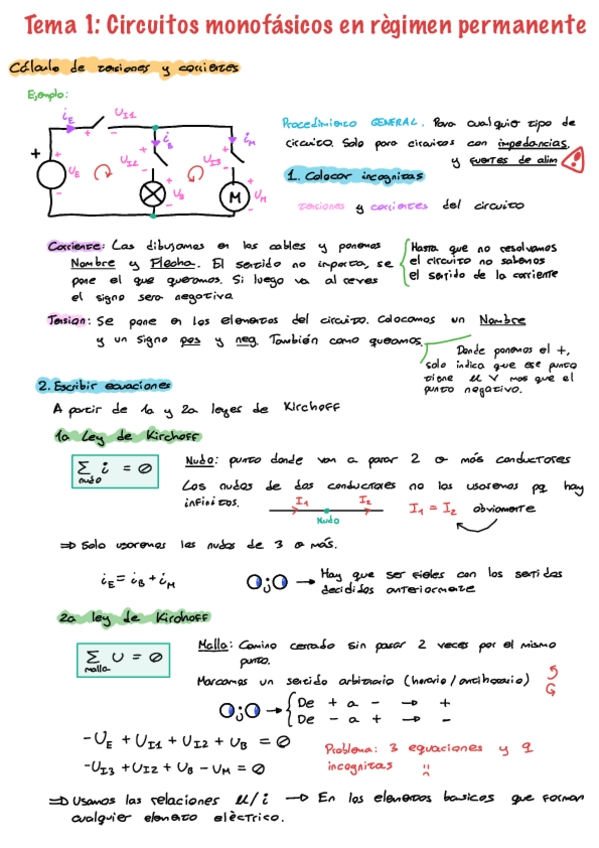 Tema 1: Circuitos monofásicos en règimen permanente
Cálculo de tensiones y corrientes
Ejemplo:
i_E U_I1
+ -
i_B i_M
+ + U_E U_I2 U_I3
- U_B M U_M
Procedimiento GENERAL. Para cualquier tipo de
circuito. Solo para circuitos con impedancias,
y fuertes de alim
1. Colocar incognitas
tensiones y corrientes del circuito
Corriente: Las dibujamos en los cables y ponemos
Nombre y Flecha. El sentido no importa, se
pone el que queramos. Si luego va al reves
el signo sera negativa
Hasta que no resolvamos
el circuito no sabemos
el sentido de la corriente
Tension: Se pone en los elementos del circuito. Colocamos un Nombre
y un signo pos y neg. También como queamos.
Donde ponemos el +,
solo indica que ese punto
tiene U V mas que el
punto negativo.
2. Escribir ecuaciones
A partir de 1a y 2a leyes de Kirchoff
1a Ley de Kirchoff
Σ i = 0
nudo
Nudo: punto donde van a parar 2 o más conductores
Los nudos de dos conductores no los usaremos pq hay
infinitos.
I1 I2
Nudo
I1 = I2 obviamente
⇒ Solo usaremos las nudos de 3 o más.
i_E = i_B + i_M
→ Hay que ser fieles con los sentidos
decididos anteriormente
2a ley de Kirchoff
Σ U = 0
malla
Malla: Camino cerrado sin pasar 2 veces por el mismo
punto.
Marcamos un sentido arbitrario (horario/antihorario)
→ De + a - → +
De - a + → -
-U_E + U_I1 + U_I2 + U_B = 0
-U_I3 + U_I2 + U_B - U_M = 0
Problema: 3 equaciones y 9
incognitas
⇒ Usamos las relaciones U/i → En los elementos basicos que forman
cualquier elemento elèctrico.